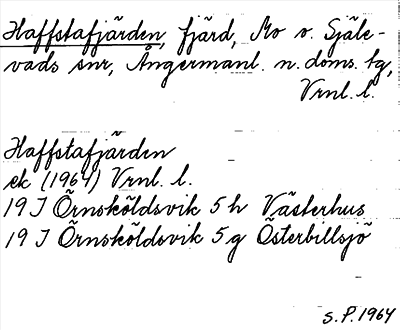 Haffstafjärden, fjärd, Mo o. Själe-
vads snr, Ångermanl. n. doms. tg,
Vrnl. l.
Haffstafjärden
ek (1964) Vrnl. l.
19 J Örnsköldsvik 5 h Västerhus
19 J Örnsköldsvik 5 g Österbillsjö
S.P. 1964